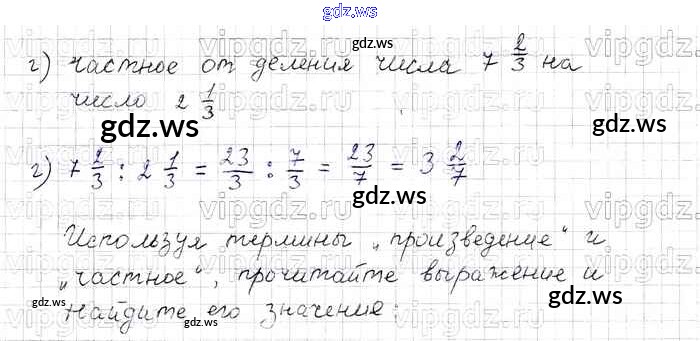 gdz.ws
г) частное от деления числа 7 2/3 на
число 2 1/3
г) 7 2/3 : 2 1/3 = 23/3 : 7/3 = 23/7 = 3 2/7
Используя термины „произведение“ и
„частное“, прочитайте выражение и
найдите его значение:
gdz.ws
gdz.ws
gdz.ws
gdz.ws
gdz.ws
gdz.ws
gdz.ws
gdz.ws